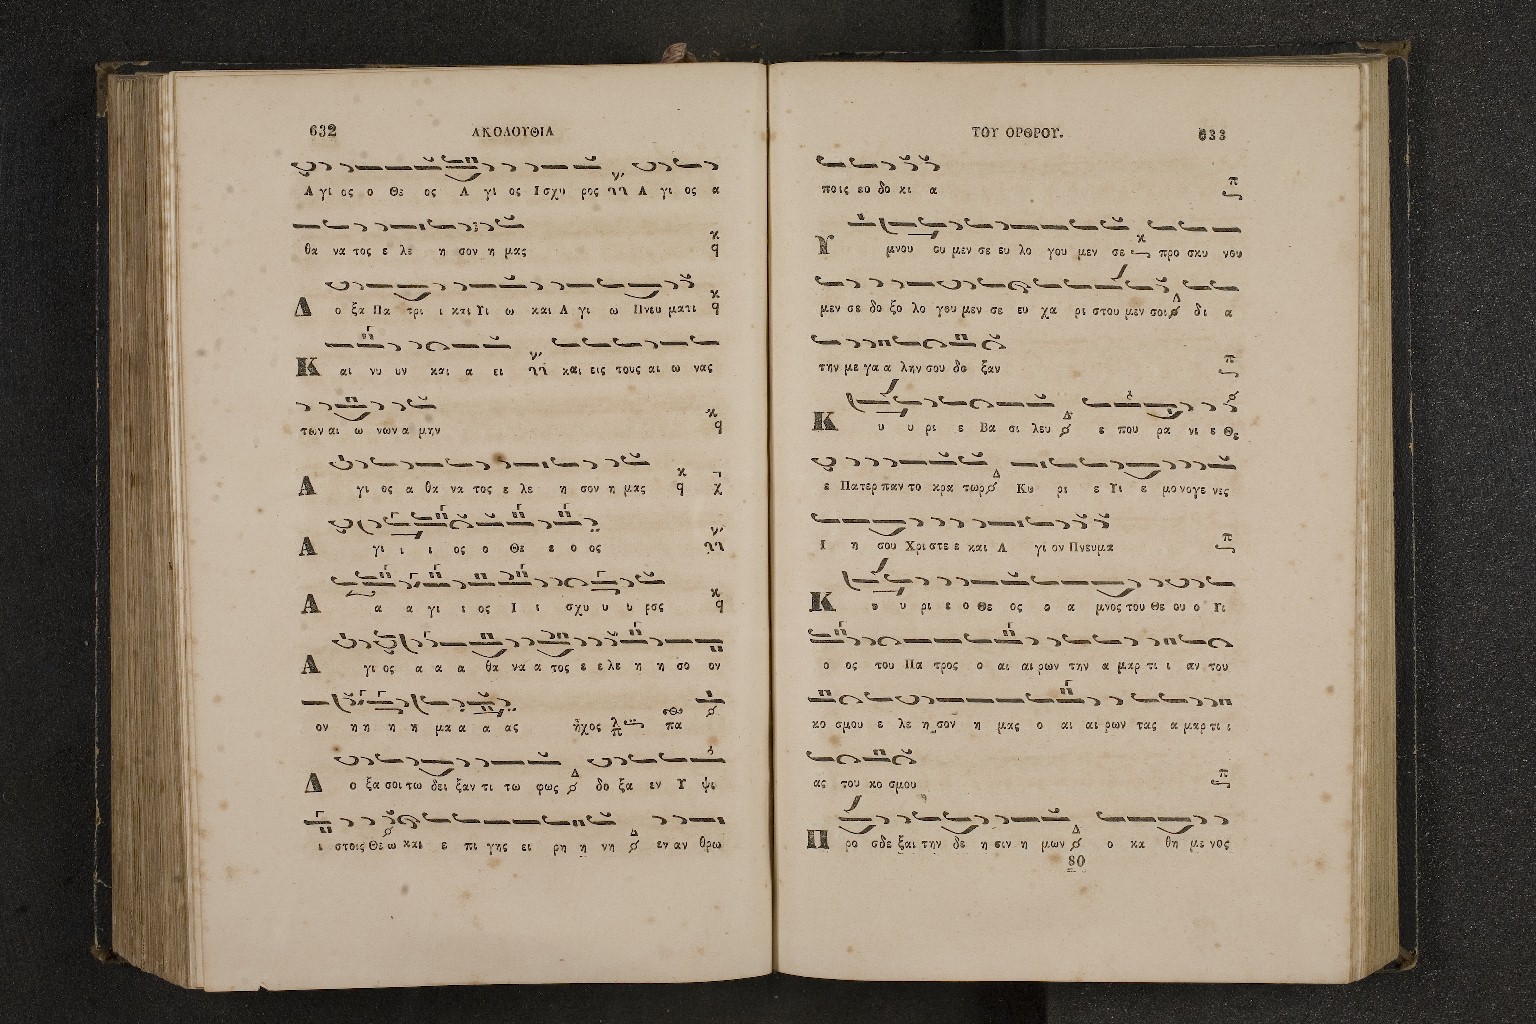 632 ΑΚΟΛΟΥΘΙΑ
Α γι ος ο Θε ος Α γι ος Ισχυ ρος Α γι ος α
θα να τος ε λε η σον η μας
Δ ο ξα Πα τρι ι και Υι ω και Α γι ω Πνευ ματι
Κ αι νυ υν και α ει και εις τους αι ω νας
των αι ω νων α μην
Α γι ος α θα να τος ε λε η σον η μας
Α γι ι ι ος ο Θε ε ο ος
Α α α γι ι ος Ι ι σχυ υ υ ρος
Α γι ος α α α θα να α τος ε ε λε η η σο ον
ον η η η η μα α α ας ἦχος πα
Δ ο ξα σοι τω δει ξαν τι τω φως δο ξα εν Υ ψι
ι στοις Θε ω και ε πι γης ει ρη η νη εν αν θρω
ΤΟΥ ΟΡΘΡΟΥ. 633
ποις ευ δο κι α
Υ μνου ου μεν σε ευ λο γου μεν σε προ σκυ νου
μεν σε δο ξο λο γου μεν σε ευ χα ρι στου μεν σοι δι α
την με γα α λην σου δο ξαν
Κ υ υ ρι ε Βα σι λευ ε που ρα νι ε Θε
ε Πατερ παν το κρα τωρ Κυ ρι ε Υι ε μο νογε νες
Ι η σου Χρι στε ε και Α γι ον Πνευμα
Κ υ υ ρι ε ο Θε ος ο α μνος του Θε ου ο Υι
ο ος του Πα τρος ο αι αι ρων την α μαρ τι ι αν του
κο σμου ε λε η σον η μας ο αι αι ρων τας α μαρ τι ι
ας του κο σμου
Π ρο σδε ξαι την δε η σιν η μων ο κα θη με νος
80